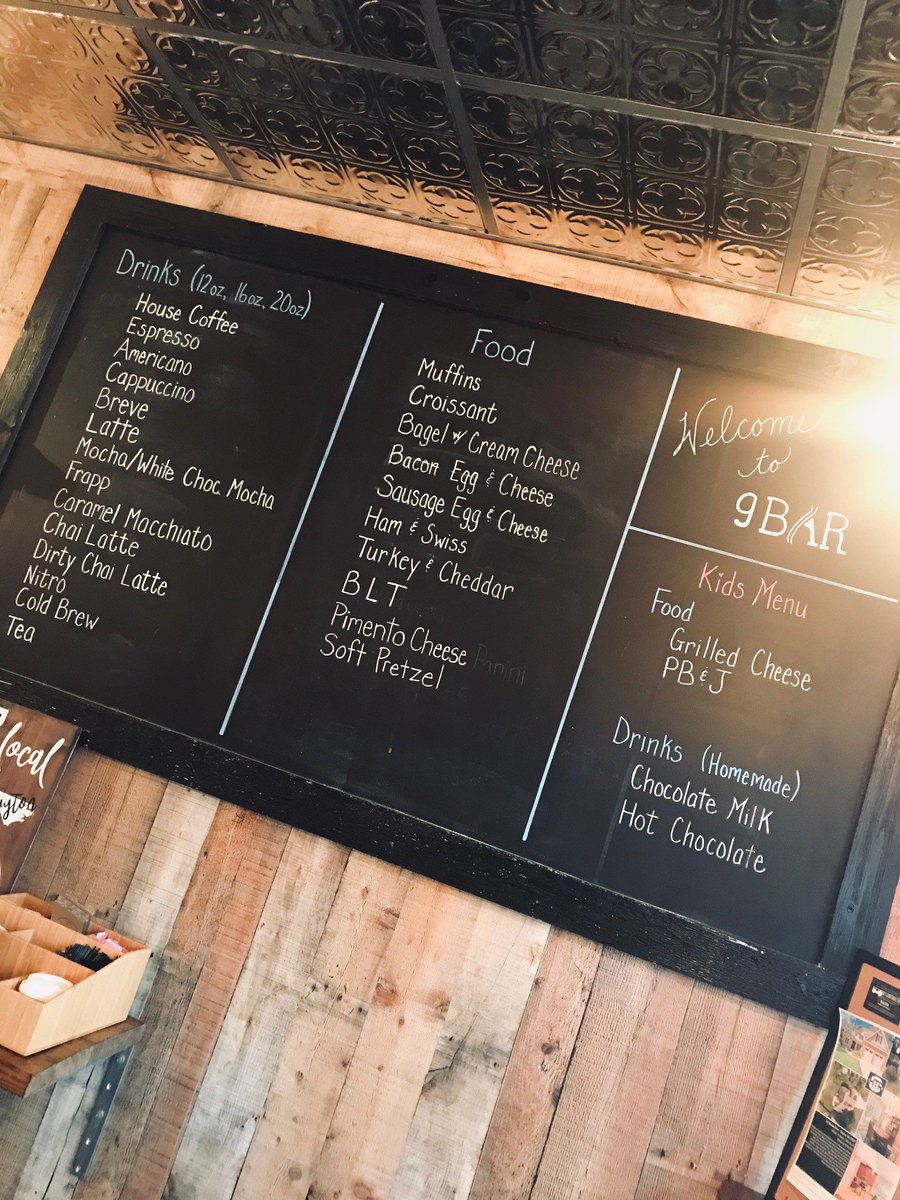 Drinks (12oz, 16oz, 20oz)
House Coffee
Espresso
Americano
Cappuccino
Breve
Latte
Mocha/White Choc. Mocha
Frapp
Caramel Macchiato
Chai Latte
Dirty Chai Latte
Nitro
Cold Brew
Tea
Food
Muffins
Croissant
Bagel w/ Cream Cheese
Bacon Egg & Cheese
Sausage Egg & Cheese
Ham & Swiss
Turkey & Cheddar
BLT
Pimento Cheese Panini
Soft Pretzel
Welcome
to
9BAR
Kids Menu
Food
Grilled Cheese
PB&J
Drinks (Homemade)
Chocolate Milk
Hot Chocolate
local